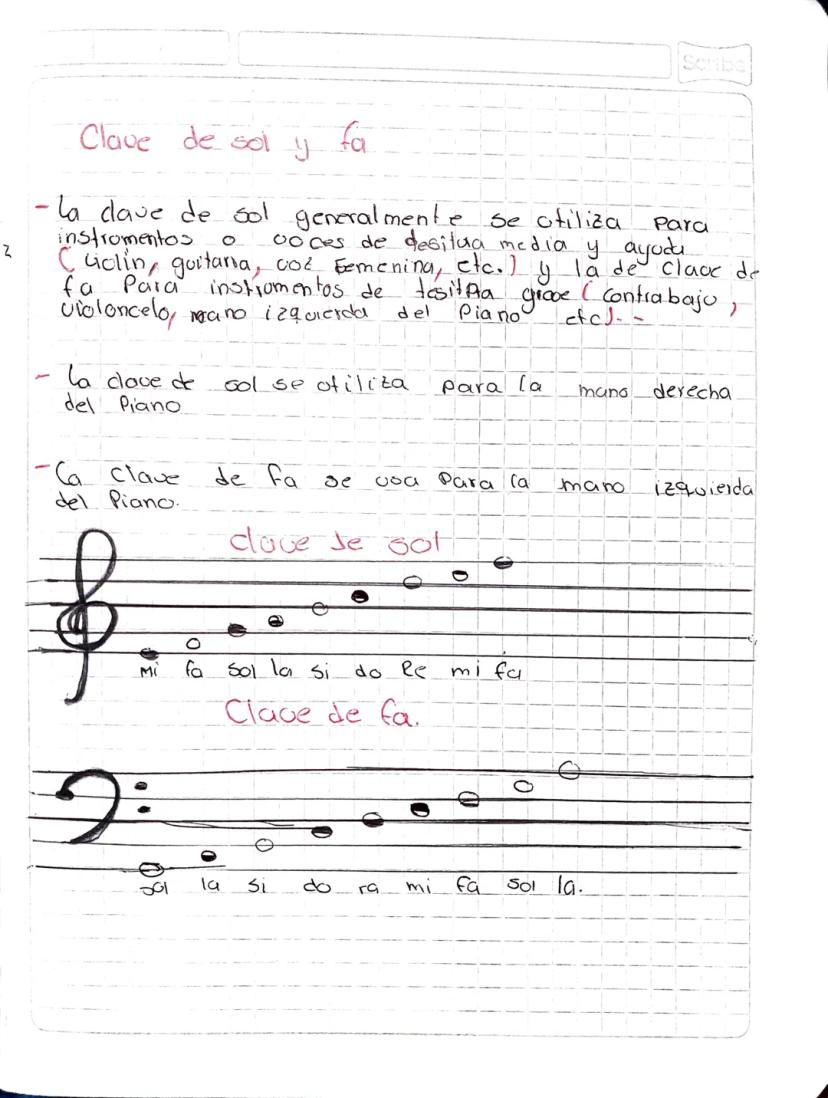 Scribe
Clave de sol y fa
- la clave de sol generalmente se utiliza para
instromentos o voces de desitua media y ayuda
(violin, guitarra, voz Femenina, etc.) y la de clave de
fa Para instromentos de tesitRa grave (contrabajo,
violoncelo, mano izquierda del Piano etc). - -
- la clave de sol se utiliza para la mano derecha
del Piano
- la clave de fa se usa para la mano izquierda
del Piano.
clave de sol
Mi fa sol la si do Re mi fa
Clave de fa.
sol la si do ra mi fa sol la.